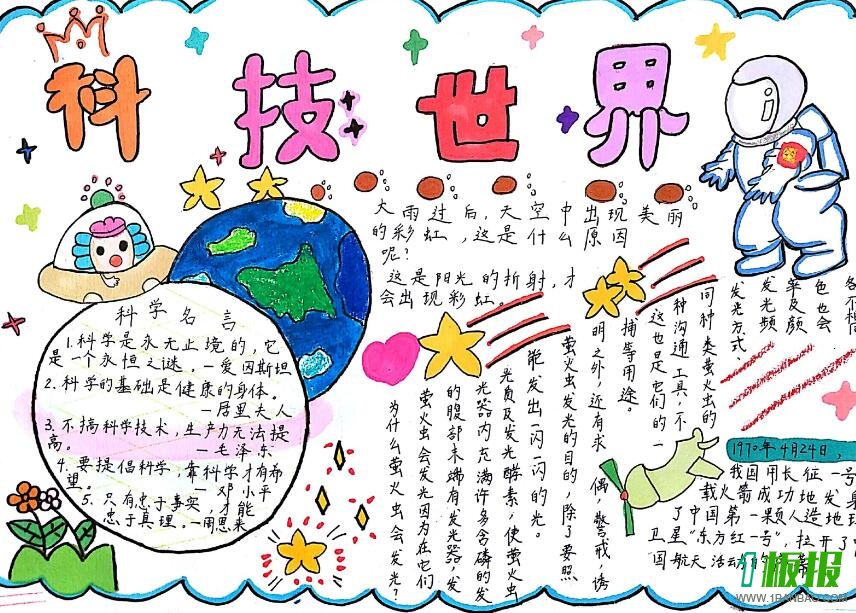 科技世界
大雨过后，天空中出现美丽
的彩虹，这是什么原因
呢？
这是阳光的折射，才
会出现彩虹。
科学名言
1.科学是永无止境的，它
是一个永恒之谜。—爱因斯坦
2.科学的基础是健康的身体。
—居里夫人
3.不搞科学技术，生产力无法提
高。 —毛泽东
4.要提倡科学，靠科学才有希
望。 —邓小平
5.只有忠于事实，才能
忠于真理。—周恩来
为什么萤火虫会发光？
萤火虫会发光因为在它们
的腹部末端有发光器，发
光器内充满许多含磷的发
光质及发光酵素，使萤火虫
能发出一闪一闪的光。
萤火虫发光的目的，除了要照
明之外，还有求偶，警戒，诱
捕等用途。
这也是它们的一
种沟通工具，不
同种类萤火虫的
发光方式
发光频
率及颜
色也会
各不相同
1970年4月24日，
我国用长征一号
载火箭成功地发
了中国第一颗人造地球
卫星“东方红一号”，拉开了中
国航天活动的
1板报
WWW.1BANBAO.COM